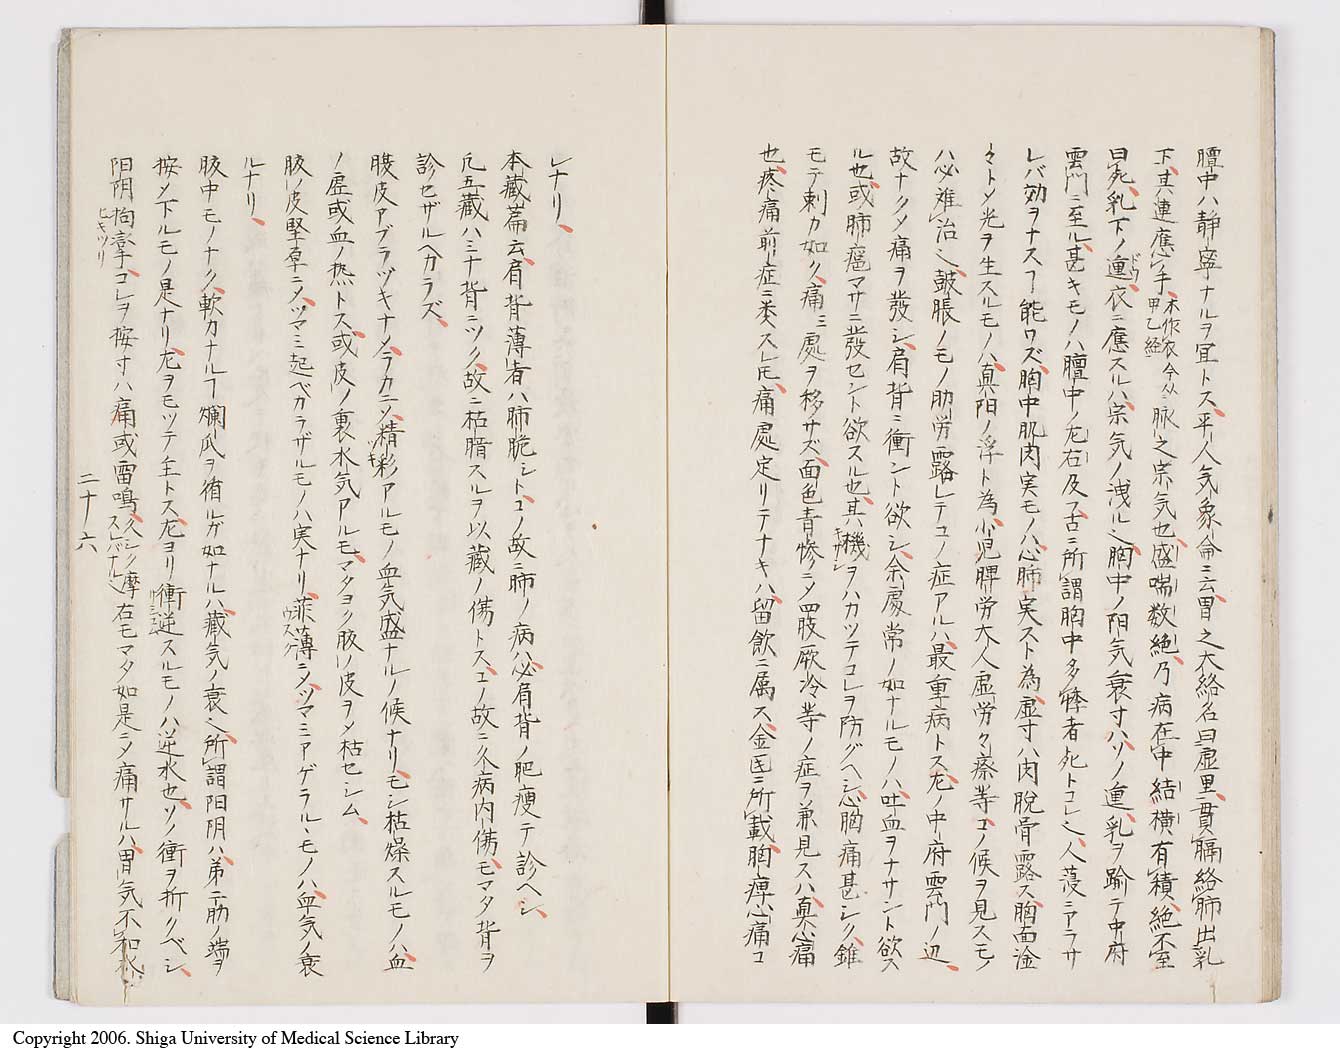 膻中ハ静寧ナルヲ宜トス平人気象侖ニ云胃之大絡名曰虚里貫膈絡肺出乳
下其連應手 甲乙経 木作衣今从 脉之宗気也盛喘数絶乃病在中結横有積絶不至
曰死乳下ノ連衣ニ應スルハ宗気ノ洩ル也胸中ノ阳気衰寸ハソノ連乳ヲ踰テ中府
雲門ニ至ル甚キモノハ膻中ノ左右及
レバ効ヲナスヿ能ワズ胸中肌肉実モノハ心肺実スト為虚寸ハ肉脱骨露ス胸面淦
光ヲ生スルモノハ真阳ノ浮ト為小児脾労大人虚労タ瘵等コノ候ヲ見スモノ
ハ必難治也皷脹ノモノ肋労露レテコノ症アルハ最重病トス左ノ中府雲門ノ辺
故ナクメ痛ヲ發シ肩背ニ衝ント欲シ余處常ノ如ナルモノハ吐血ヲナサント欲ス
ル也或肺癰マサニ發セント欲スル也其機ヲハカツテコレヲ防グヘシ心胸痛甚シク錐
モテ刺カ如ク痛ミ處ヲ移サズ面色青惨ニメ四肢厥冷等ノ症ヲ兼見スハ真心痛
也疼痛前症ニ类スレ𪜈痛處定リテナキハ留飲ニ属ス金匱ニ所載胸痺心痛コ
レナリ
本藏篇云肩背薄者ハ肺脆シトコノ故ニ肺ノ病ハ必肩背ノ肥痩テ診ヘシ
凡五藏ハミナ背ニツク故ニ枯腊スルヲ以藏ノ傷トスコノ故ニ久病内傷モマタ背ヲ
診セザルヘカラズ
腹皮アブラヅキナメラカニメ精彩アルモノ血気盛ナルノ候ナリモシ枯燥スルモノハ血
ノ虚或血ノ熱トス或皮ノ裏水気アルモマタヨク腹ノ皮ヲメ枯セシム
腹ノ皮堅厚ニメツマミ起ベカラザルモノハ実ナリ菲薄ニメツマミアゲラルヽモノハ血気ノ衰
ルナリ
腹中モノナク軟カナルヿ爛瓜ヲ
按メ下ルモノ是ナリ左ヲモツテ主トス左ヨリ衝逆スルモノハ逆水也ソノ衝ヲ折クベシ
阳阴拘攣ヒキツリコレヲ按寸ハ痛或雷鳴久シク摩スレバナル也右モマタ如是ニメ痛サルハ胃気不和水也
二十六
Copyright 2006. Shiga University of Medical Science Library